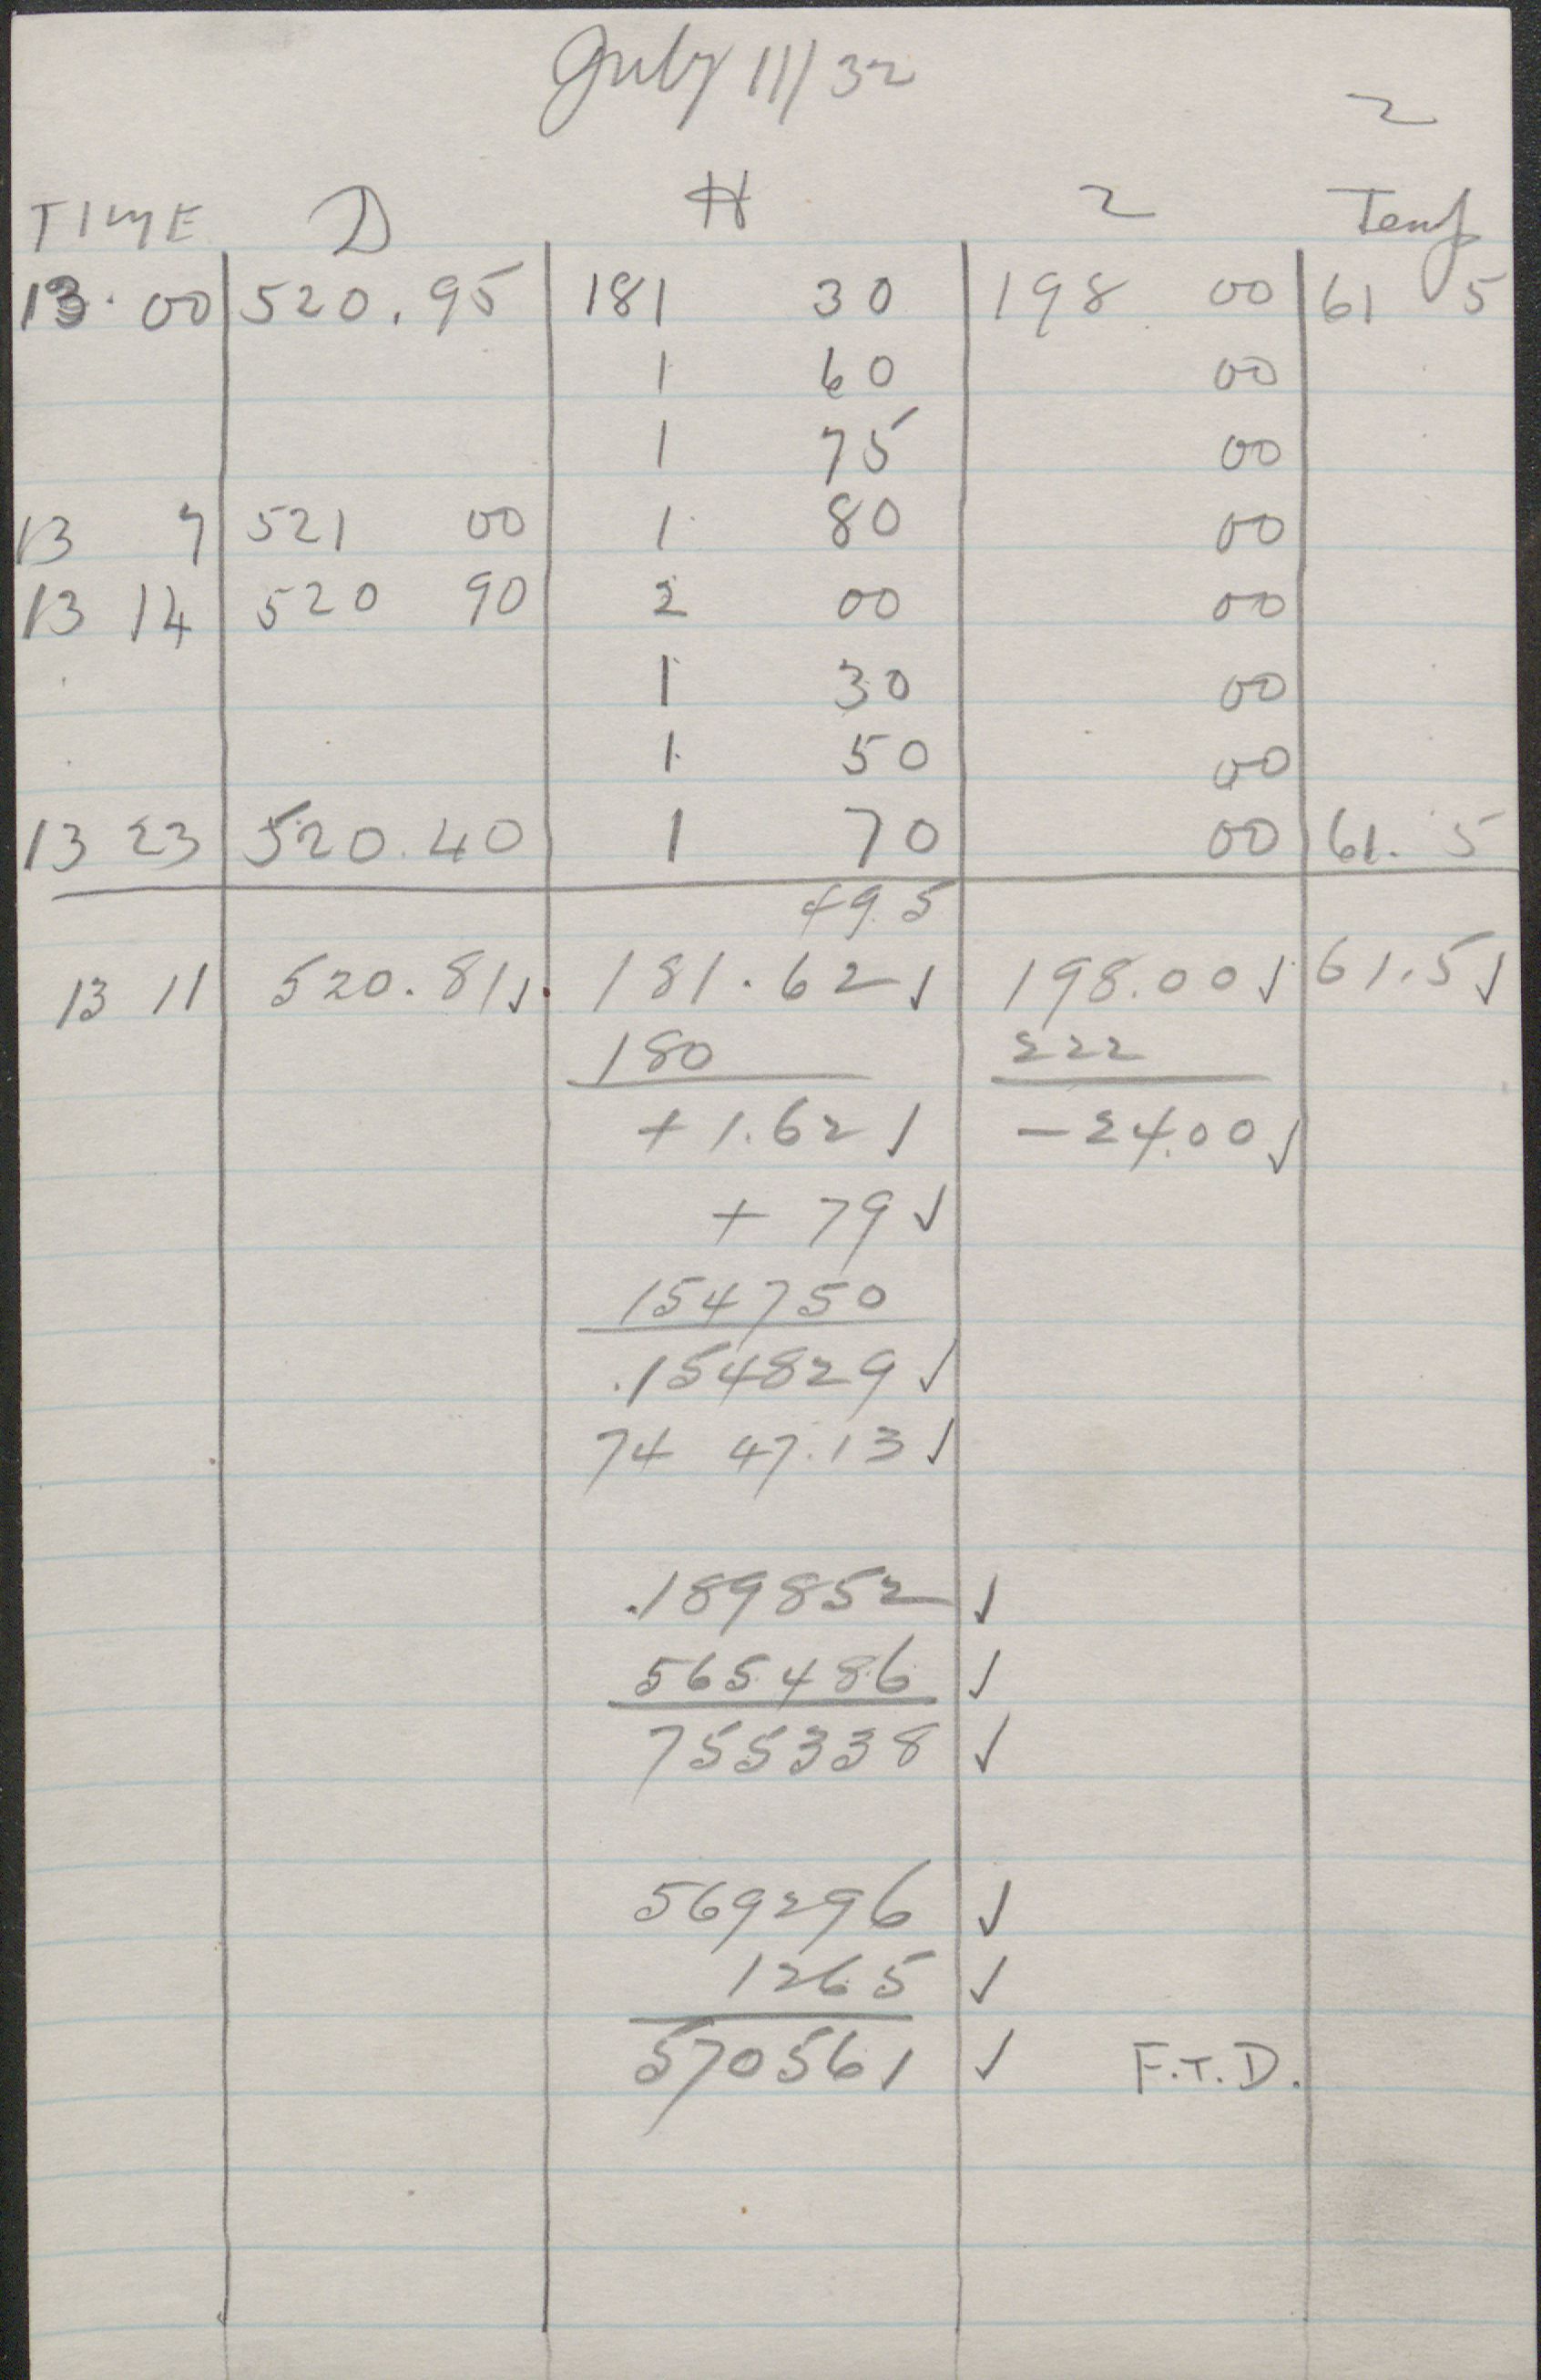 July 11/32
2
TIME D H 2 Temp
13.00 520.95 181 30 198 00 61 5
1 60 00
1 75 00
13 7 521 00 1 80 00
13 14 520 90 2 00 00
1 30 00
1 50 00
13 23 520.40 1 70 00 61. 5
495
13 11 520.81✓ 181.62✓ 198.00✓ 61.5✓
180 222
+1.62✓ -24.00✓
+ 79✓
154750
.154829✓
74 47.13✓
.189852 ✓
565486 ✓
755338 ✓
569296 ✓
1265 ✓
570561 ✓ F.T.D.